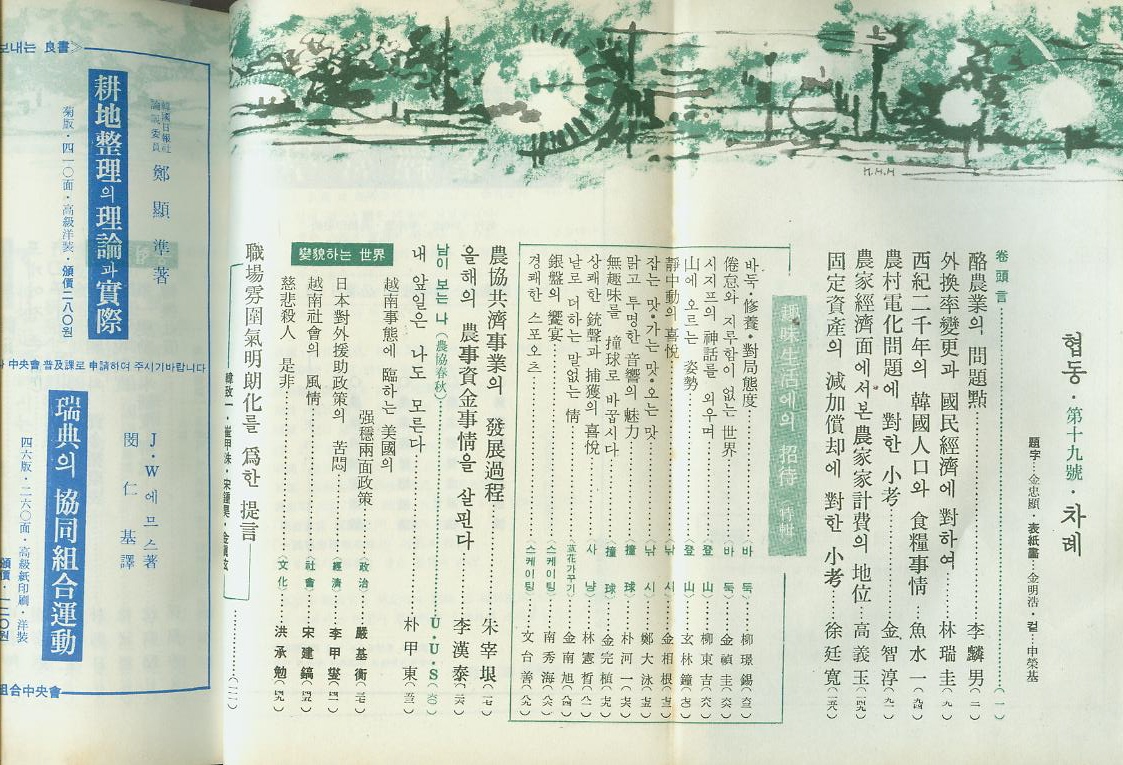 협동・第十九號・차례
題字…金忠顯・表紙畵…金明浩 컽…申榮基
卷頭言……(一)
酪農業의 問題點……李麟男(二)
外換率變更과 國民經濟에 對하여……林瑞圭(九)
西紀二千年의 韓國人口와 食糧事情……魚水一(九四)
農村電化問題에 對한 小考……金智淳(九一)
農家經濟面에서본 農家家計費의 地位……高義玉
固定資產의 減加償却에 對한 小考……徐廷寬
趣味生活에의 招待 特輯
바둑・修養・對局態度……(바둑)……柳璟錫
倦怠와 지루함이 없는 世界……(바둑)……金禎圭
시지프의 神話를 외우며……(登山)……柳東吉
山에 오르는 姿勢……(登山)……玄林鐘
靜中動의 喜悅……(낚시)……金相根
잡는 맛・가는 맛・오는 맛……(낚시)……鄭大泳
맑고 투명한 音響의 魅力……(撞球)……朴河一
無趣味를 撞球로 바꿉시다……(撞球)……金完植
상쾌한 銃聲과 捕獲의 喜悅……(사냥)……林憲哲
날로 더하는 말없는 情……(花가꾸기)……金南旭
銀盤의 饗宴……(스케이팅)……南秀海
경쾌한 스포오츠……(스케이팅)……文台善(八九)
農協共濟事業의 發展過程……朱宰垠
올해의 農事資金事情을 살핀다……李漢泰
남이 보는 나(農協春秋)……U・U・S
내 앞일은 나도 모른다……朴甲東
變貌하는 世界
越南事態에 臨하는 美國의
强穩兩面政策……(政治)……嚴基衡
日本對外援助政策의 苦悶……(經濟)……李甲燮
越南社會의 風情……(社會)……宋建鎬
慈悲殺人 是非……(文化)……洪承勉
職場雰圍氣明朗化를 爲한 提言
보내는 良書>
韓國日報社
論說委員
鄭顯準著
耕地整理의 理論과 實際
菊版・四一〇面・高級洋裝・頒價二八〇원
中央會 普及課로 申請하여 주시기바랍니다
J・W에므스著
閔仁基譯
瑞典의 協同組合運動
四六版・二六〇面・高級紙印刷・洋裝
頒價・一二〇원
組合中央會